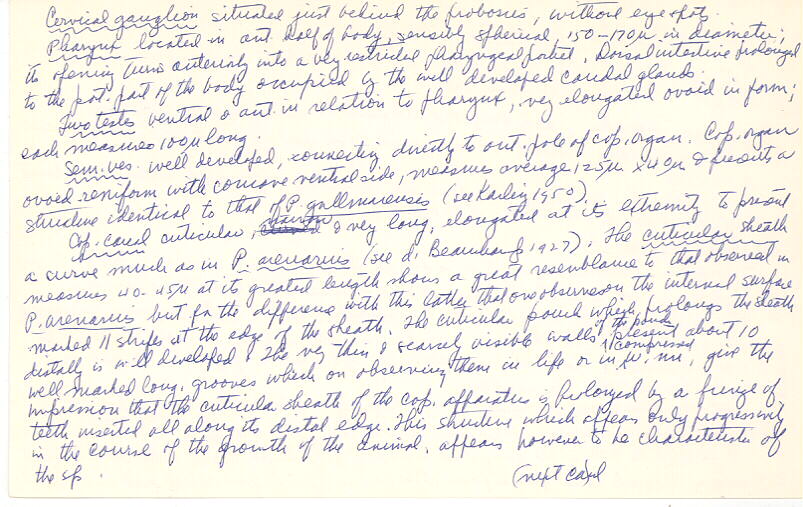 Cervical ganglion situated just behind the proboscis, without eye spots.
Pharynx located in ant. half of body, sensibly spherical, 150-170µ in diameter;
its opening turns anteriorly into a very restricted pharyngeal pocket. Dorsal intestine prolonged
to the post. part of the body occupied by the well developed caudal glands.
Two testes ventral & ant. in relation to pharynx, very elongated ovoid in form;
each measures 100µ long.
Sem. ves. well developed, connecting directly to ant. pole of cop. organ. Cop. organ
ovoid-reniform with concave ventral side, measures average 125µ x 40µ & presents a
structure identical to that of P. gullmarensis (see Karling 1950).
Cop. canal cuticular, narrow & very long, elongated at its extremity to present
a curve much as in P. arenarius (see d. Beauchamp 1927). The cuticular sheath
measures 40-45µ at its greated length shows a great resemblance to that observed in
P. arenarius but for the difference with this latter that one observes on the internal surface
marked 11 stripes at the edge of the sheath. The cuticular pouch which prolongs the sheath
distally is well developed & the very thin & scarcely visible walls of the pouch present about 10
well marked long. grooves which on observing them in life or in compressed, give the
impression that the cuticular sheath of the cop. apparatus is prolonged by a fringe of
teeth inserted all along its distal edge. This structure which appears only progressively
in the course of the growth of the animal, appears however to be characteristic of
the sp.
(next card